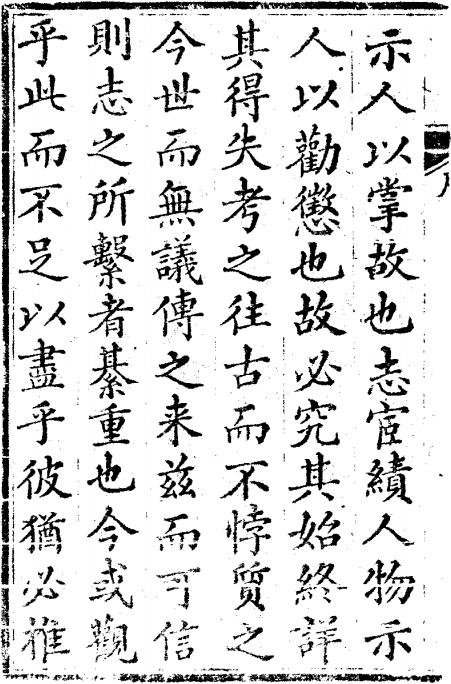 示人以掌故也志宦績人物示
人以勸懲也故必究其始終詳
其得失考之往古而不悖質之
今世而無議傳之来兹而可信
則志之所繫者綦重也今或觀
乎此而不足以盡乎彼猶必推